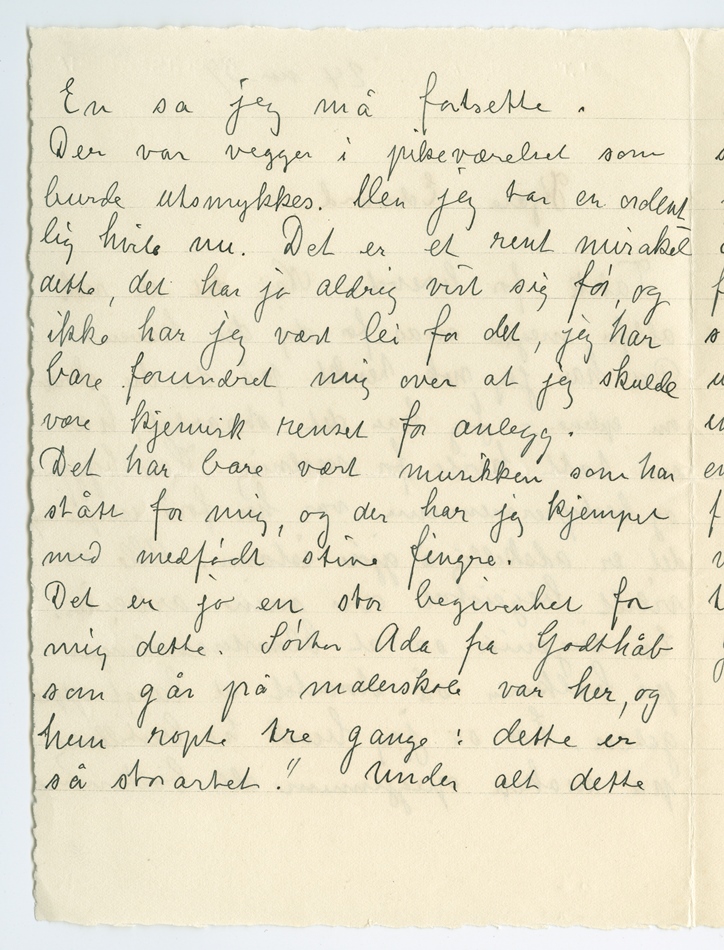 En sa jeg må fortsette.
Der var vegger i pikeværelset som
burde utsmykkes. Men jeg tar en ordent
lig hvile nu. Det er et rent mirakel
dette, det har jo aldrig vist sig før, og
ikke har jeg vært lei for det, jeg har
bare forundret mig over at jeg skulde
være kjemisk renset for anlegg.
Det har bare vært musikken som har
stått for mig, og der har jeg kjempet
med medfødt stive fingre.
Det er jo en stor begivenhet for
mig dette. Søster Ada fra Godthåb
som går på malerskole var her, og
hun ropte tre gange: dette er
så storartet!" Under alt dette